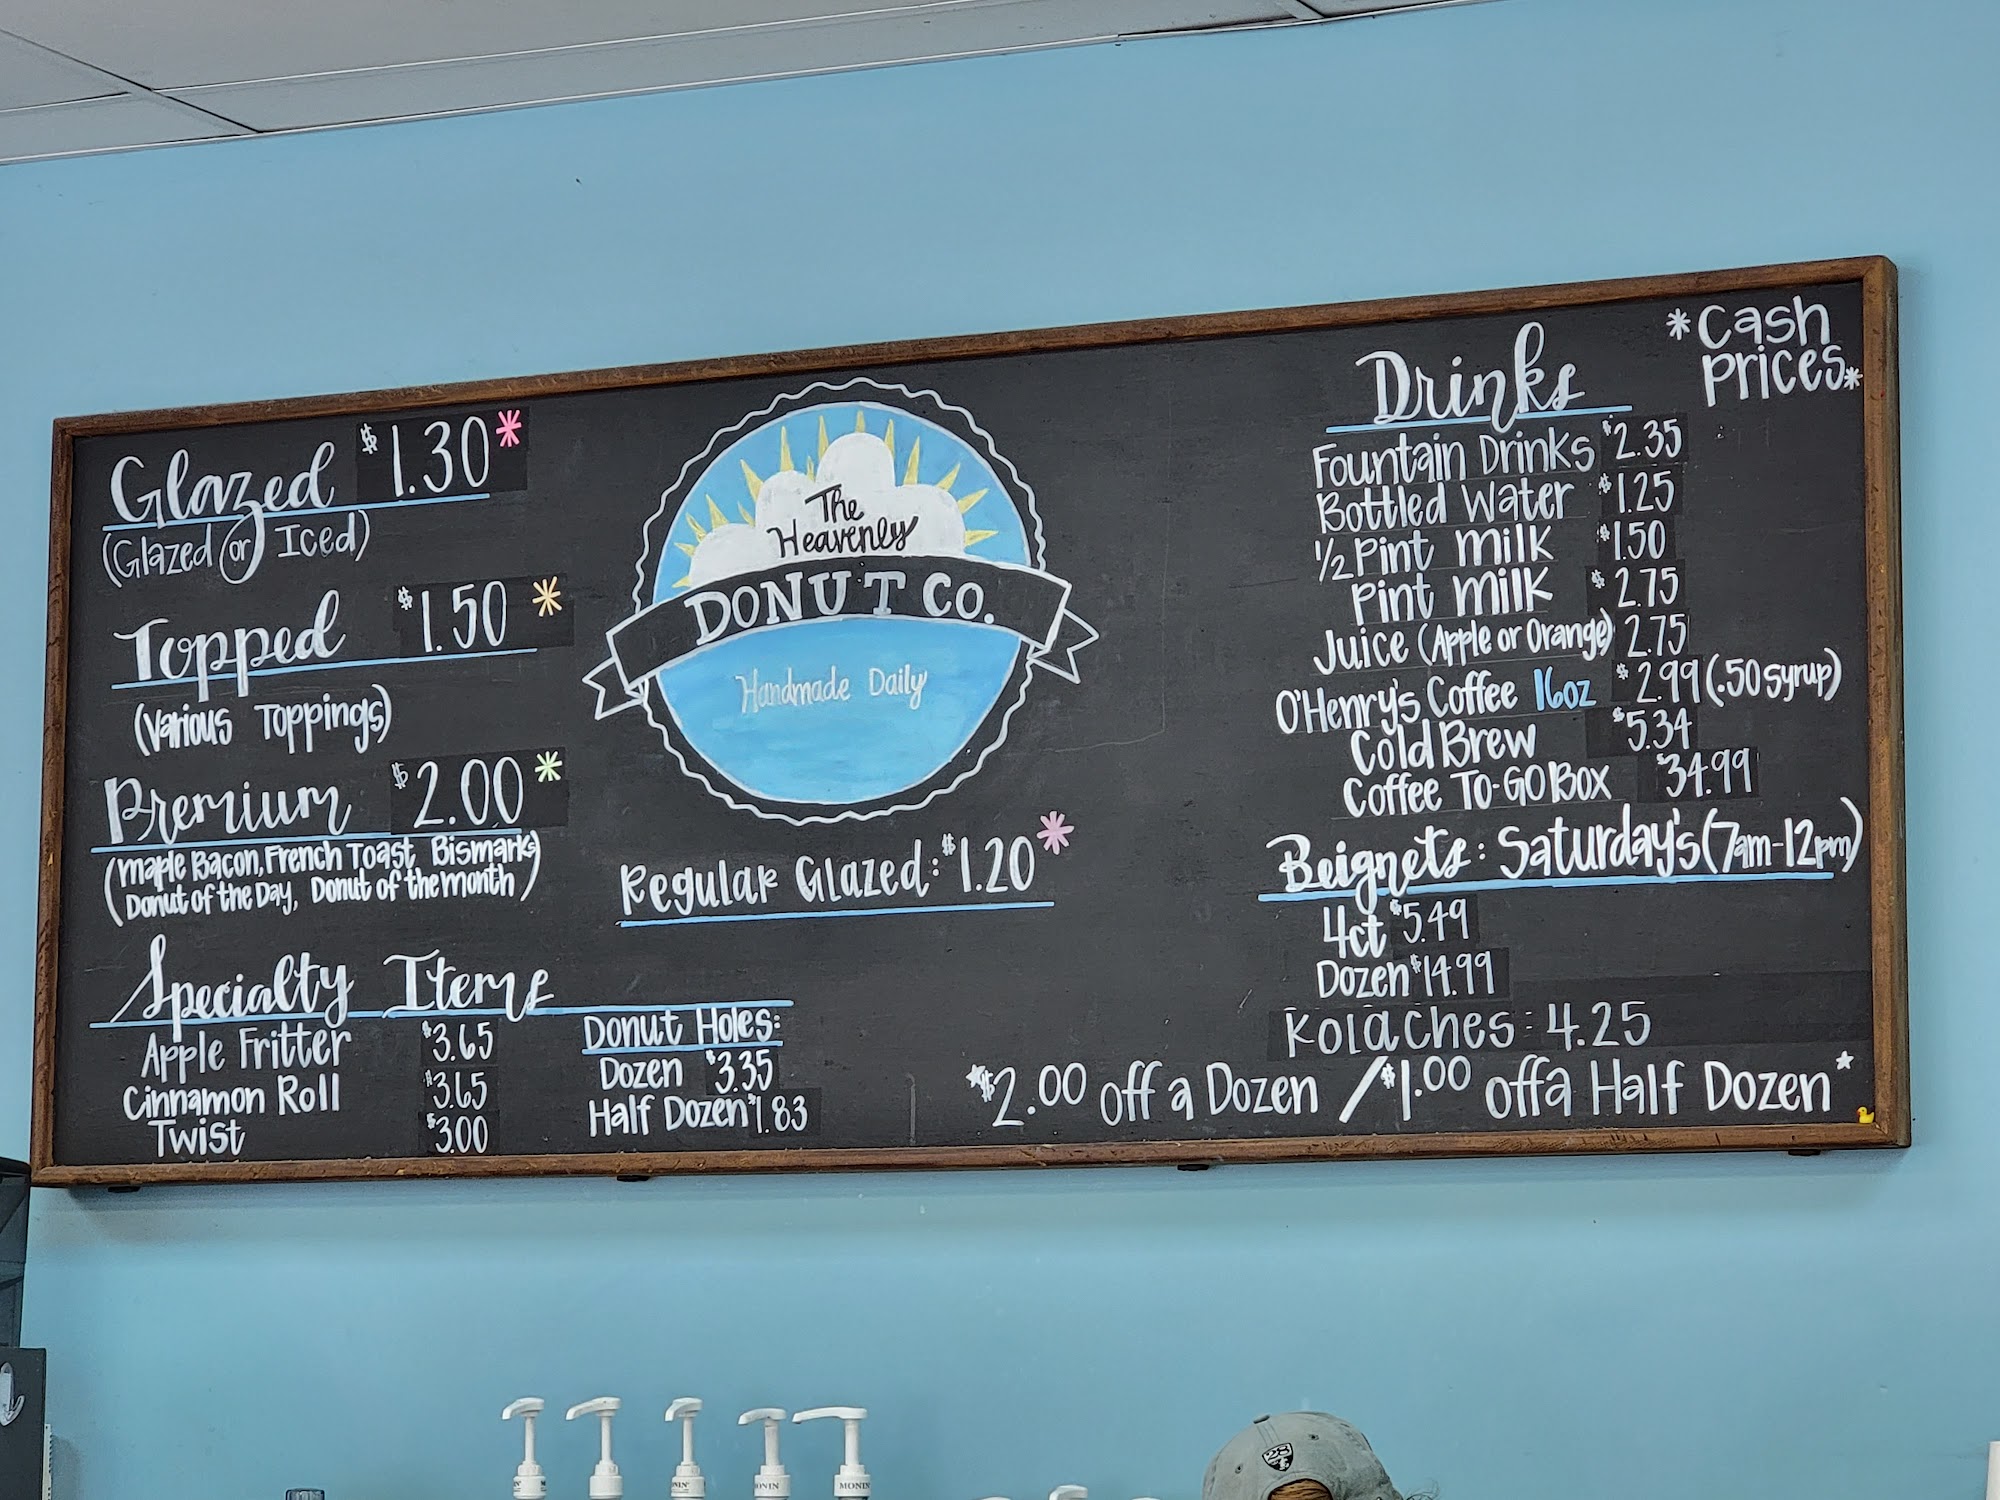 Glazed $1.30*
(Glazed or Iced)
Topped $1.50 *
(Various Toppings)
Premium $2.00 *
(Maple Bacon, French Toast, Bismarks
Donut of the Day, Donut of the month)
Specialty Items
Apple Fritter $3.65
Cinnamon Roll $3.65
Twist $3.00
Donut Holes:
Dozen $3.35
Half Dozen $1.83
The
Heavenly
DONUT CO.
Handmade Daily
Regular Glazed: $1.20*
*Cash
prices*
Drinks
Fountain Drinks $2.35
Bottled Water $1.25
1/2 Pint Milk $1.50
Pint Milk $2.75
Juice (Apple or Orange) 2.75
O'Henry's Coffee 16oz $2.99 (.50 Syrup)
Cold Brew $5.34
Coffee To-Go Box $34.99
Beignets: Saturday's (7am-12pm)
4ct $5.49
Dozen $14.99
Kolaches: 4.25
*$2.00 off a Dozen / $1.00 off a Half Dozen*
MONIN
MONIN